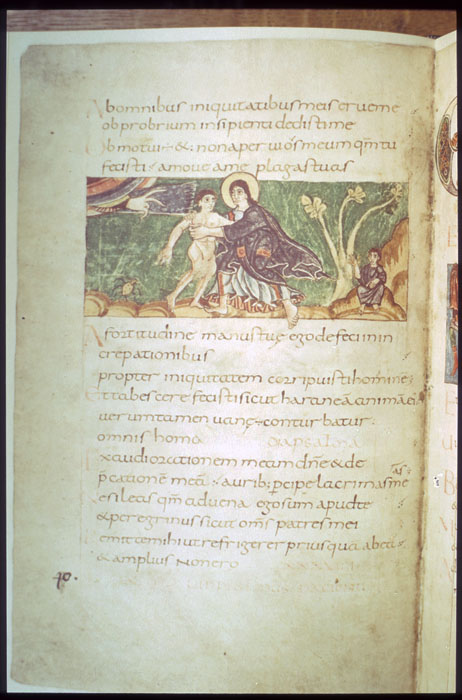 Ab omnibus iniquitatibus meis erue me
obprobrium insipienti dedisti me
Obmutui & non aperui os meum qm tu
fecisti amoue a me plagas tuas
A fortitudine manus tue ego defeci in in
crepationibus
propter iniquitatem corripuisti hominē
Et tabescere fecisti sicut haranea animā ei
uerumtamen uane conturbatur
omnis homo
Exaudi orationem meam dne & de
p̄cationē meā aurib; pcipe lacrimas me
as
Ne sileas qm aduena ego sum apud te
& peregrinus sicut oms patres mei
emitte mihi ut refrigerer priusquā abeā
& amplius non ero